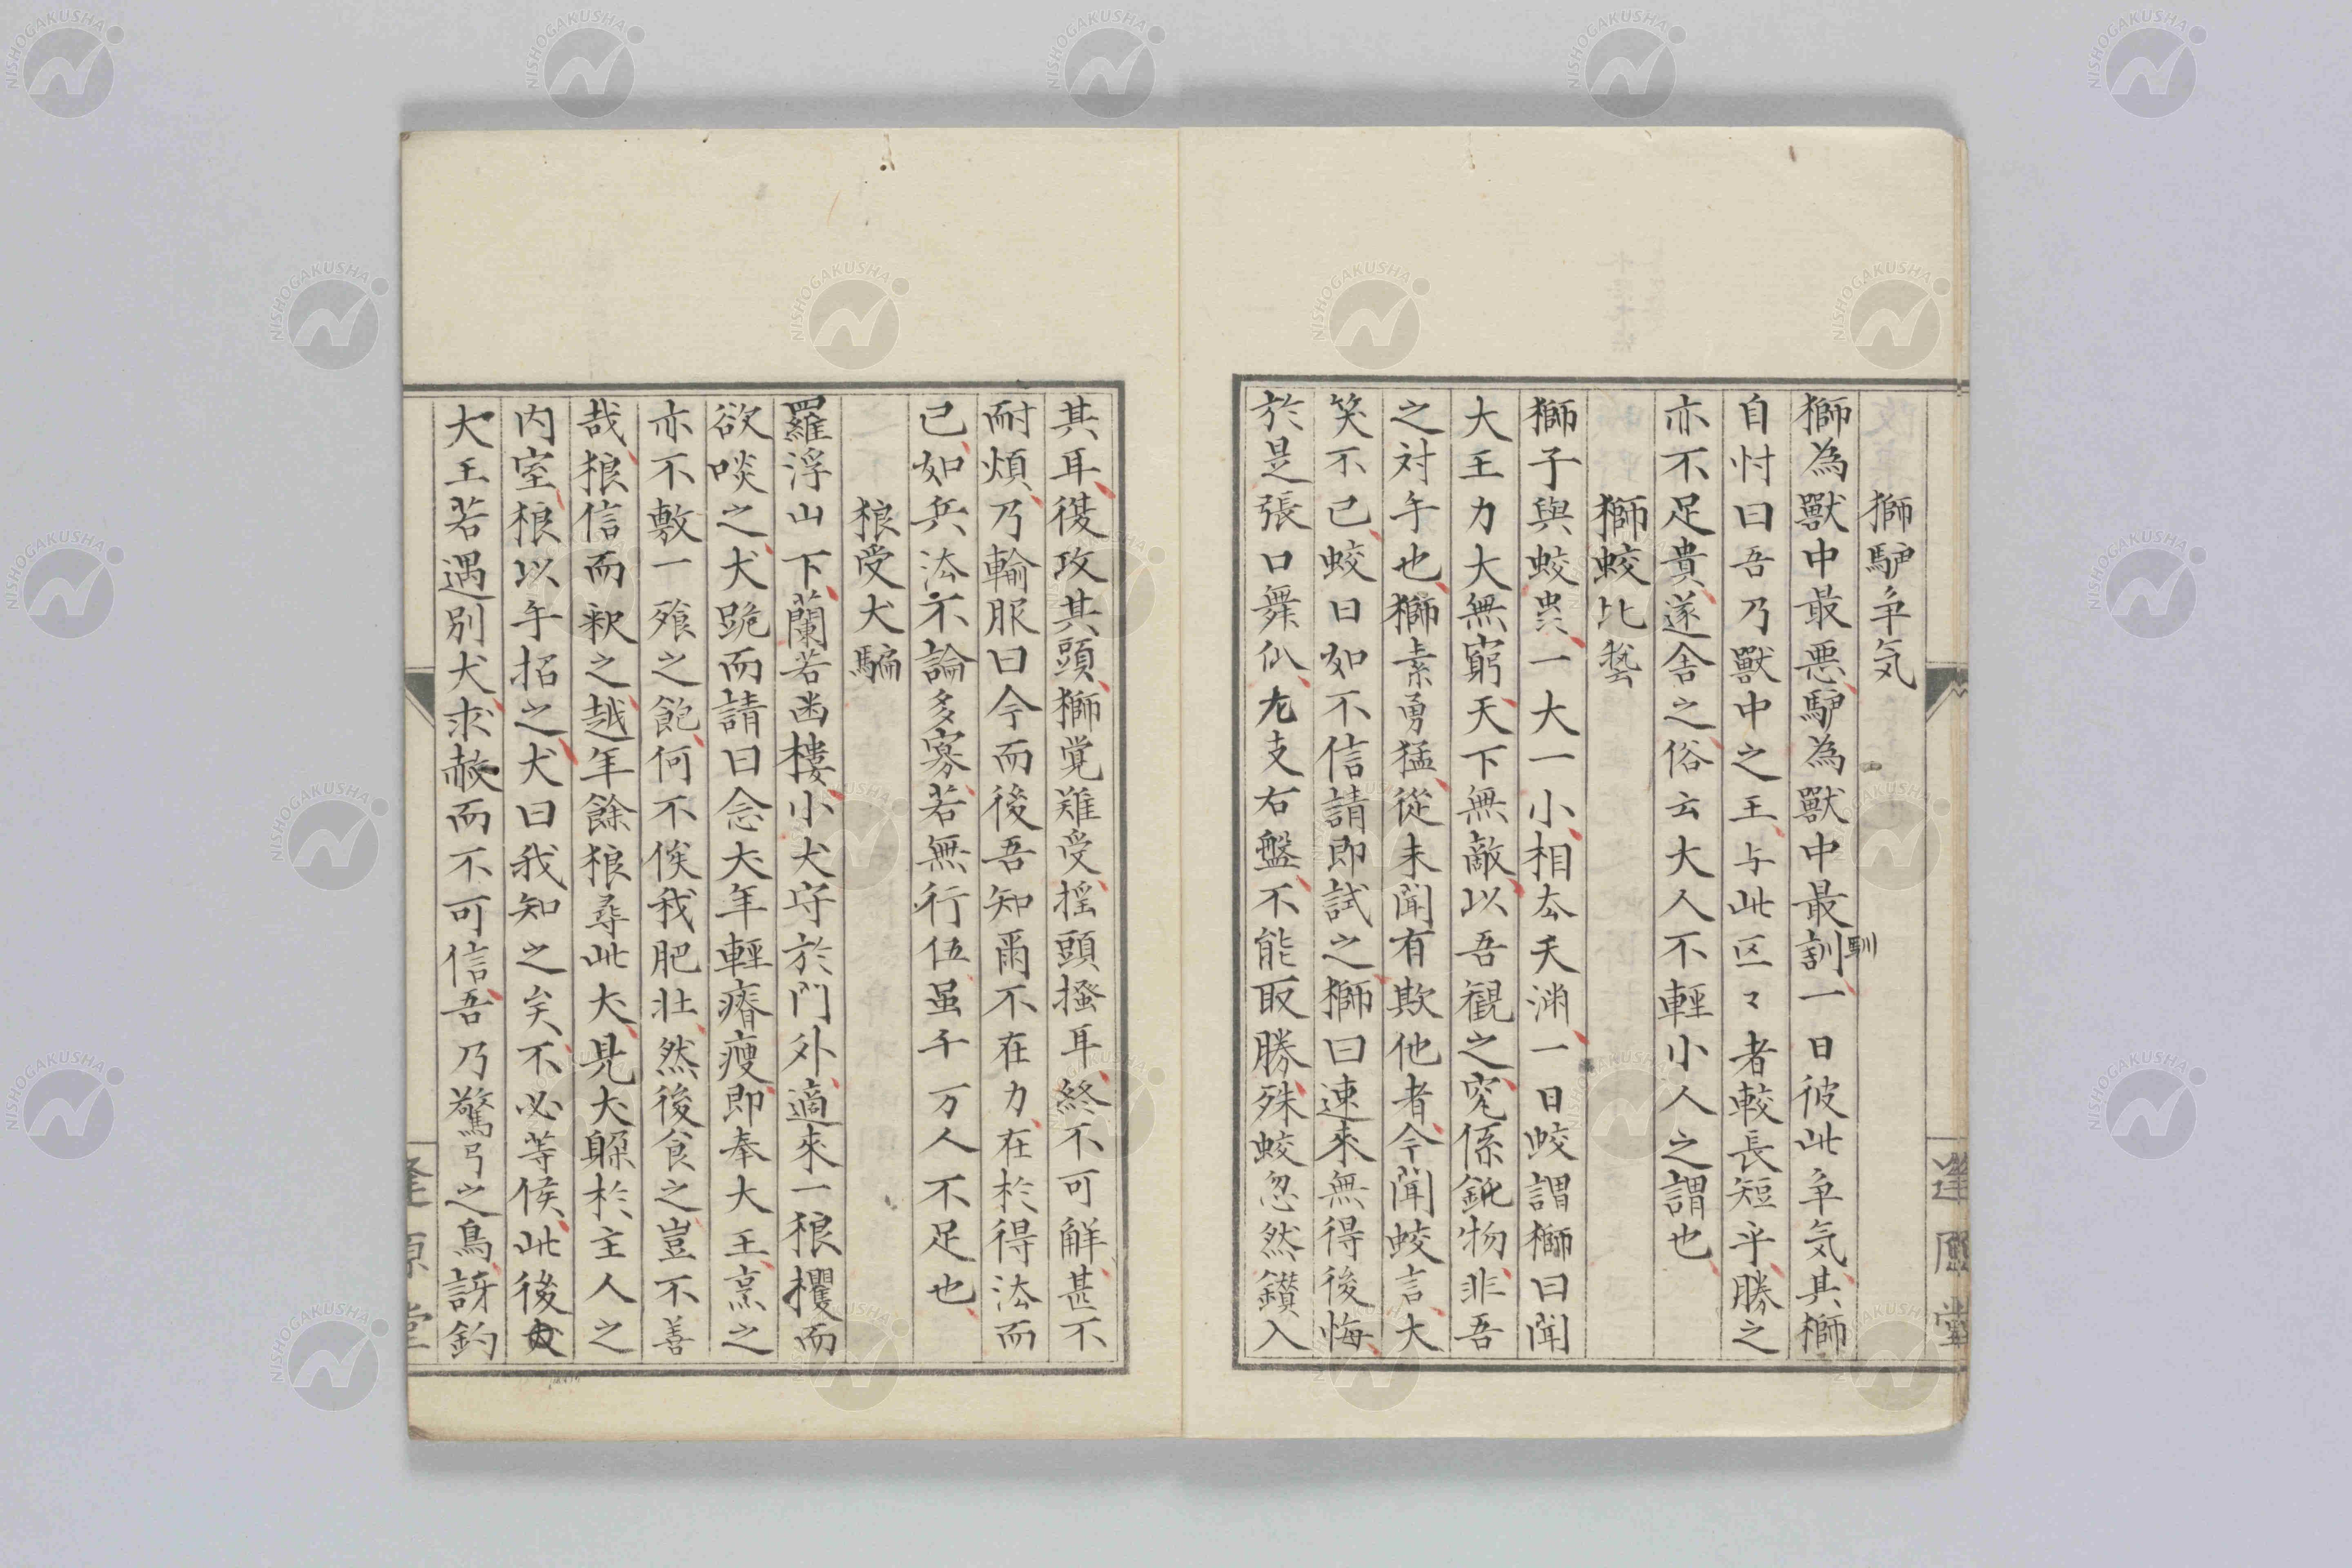 獅馿争気
獅為獸中最悪馿為獸中最訓一日彼此争気其獅
馴
自忖曰吾乃獸中之王与此区々者較長短乎勝之
亦不足貴遂舍之俗云大人不輕小人之謂也
獅蛟比藝
獅子與蛟蚩一大一小相去天渊一日蛟謂獅曰聞
大王力大無窮天下無敵以吾観之究係鈍物非吾
之対手也獅素勇猛從未聞有欺他者今聞蛟言大
笑不已蛟曰如不信請即試之獅曰速來無得後悔
於是張口舞仏左支右盤不能取勝殊蛟忽然鑚入
其耳復攻其頭獅覚难受揺頭搔耳終不可觧甚不
耐煩乃輸服曰今而後吾知爾不在力在於得法而
已如兵法不論多寡若無行伍虽千万人不足也
狼受犬騙
羅浮山下蘭若幽樓小犬守於門外適來一狼攫而
欲啖之犬跪而請曰念犬年輕瘠瘦即奉大王烹之
亦不敷一飱之飽何不俟我肥壮然後食之豈不善
哉狼信而釈之越年餘狼尋此犬見犬躱於主人之
内室狼以手招之犬曰我知之矣不必等候此後
大王若遇別犬求赦而不可信吾乃驚弓之鳥訝釣
逢原堂
逢原堂
NISHOGAKUSHA